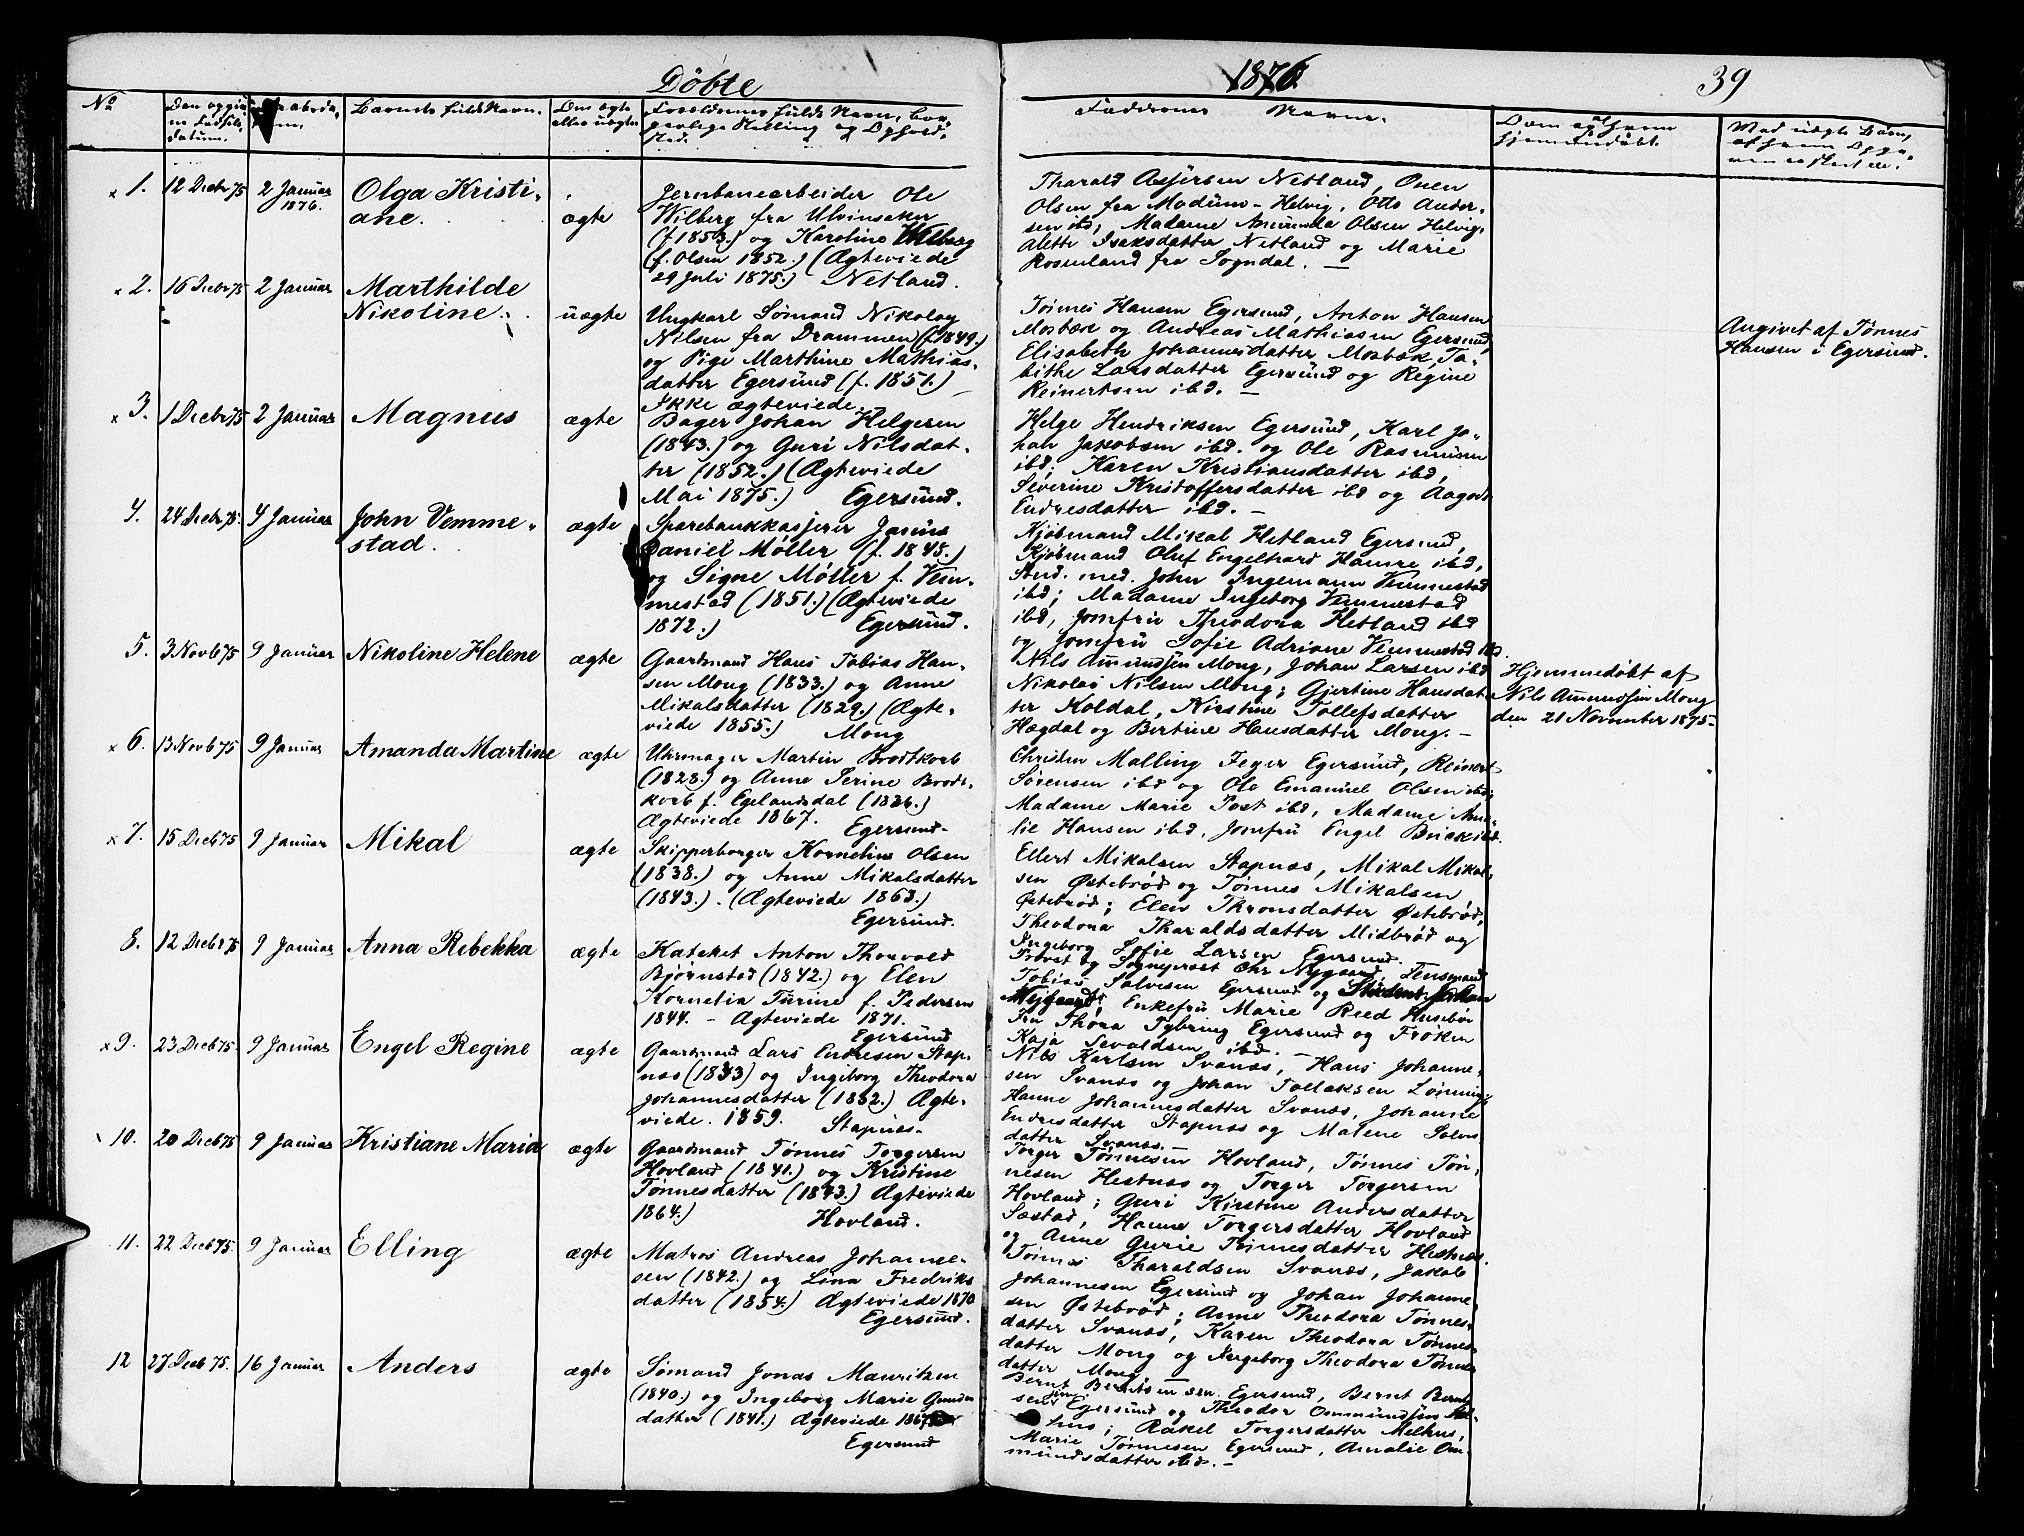 Döbte
1876
39
No
Barnets fulde Navn.
Faddernes Navne.
1. 12 Decbr 75 2 Januar 1876. Olga Kristiane. ægte
Jernbanearbeider Ole
Wilberg fra Ulvinsaker
(f. 1853.) og Karoline Wilberg
(f. Olsen 1852.) (Ægteviede
29 Juli 1875.) Netland.
Tharald Asjersen Netland,
Olsen fra Modum - Helvig, Otto Ander-
sen ibd, Madame Amunda Olsen Helvig,
Alette Isaksdatter Netland og Marie
Rosenland fra Sogndal. —
2. 16 Decbr 75 2 Januar Marthilde
Nikoline. uægte
Ungkarl Sømand Nikolay
Nilsen fra Drammen (f. 1849.)
og Pige Marthine Mathias-
datter Egersund (f. 1851.)
Ikke ægteviede.
Tönnes Hansen Egersund, Anton Hansen
Mosbæk og Andreas Mathiasen Egersund,
Elisabeth Johannesdatter Mosbæk, Ta-
bithe Larsdatter Egersund og Regine
Reinertsen ibd. —
Angivet af Tønnes
Hansen i Egersund.
3. 1 Decbr 75 2 Januar Magnus ægte
Bager Johan Helgesen
(1843.) og Guri Nilsdat-
ter (1852.) (Ægteviede
Mai 1875.) Egersund.
Helge Hendriksen Egersund, Karl Jo-
han Jakobsen ibd. og Ole Rasmusen
ibd; Karen Kristiansdatter ibd,
Severine Kristoffersdatter ibd og Aagot
Endresdatter ibd. —
4. 24 Decbr 75. 4 Januar John Vemme-
stad. ægte
Sparebankkasjerer Janus
Daniel Møller (f. 1848.)
og Signe Møller f. Vem-
mestad (1851.) (Ægteviede
1872.) Egersund.
Kjøbmand Mikal Hetland Egersund,
Kjøbmand Oluf Engelhard Hamre ibd,
Stud. med. John Ingemann Vemmestad
ibd; Madame Ingeborg Vemmestad
ibd, Jomfru Theodora Hetland ibd
og Jomfru Sofie Adriane Vemmestad ibd.
5. 3 Novb 75 9 Januar Nikoline Helene ægte
Gaardmand Hans Tobias Han-
sen Mong (1833.) og Anne
Mikalsdatter (1829.) (Ægte-
viede 1855.) Mong
Nils Amundsen Mong, Johan Larsen ibd
Nikolai Nilsen Mong; Gjertine Hansdat-
ter Koldal, Kirstine Tollefsdatter
Hægdal og Bertine Hansdatter Mong. —
Hjemmedøbt af
Nils Amundsen Mong
den 21 November 1875.
6. 13 Novb 75 9 Januar Amanda Martine ægte
Uhrmager Martin Brodtkorb
(1828.) og Anne Serine Brodt-
korb f. Egelandsdal (1826.)
Ægteviede 1867. Egersund.
Christen Malling Feyer Egersund, Reinert
Sørensen ibd og Ole Emanuel Olsen ibd;
Madame Marie Post ibd, Madame Ama-
lie Hansen ibd, Jomfru Engel ibd.
7. 15 Decb 75 9 Januar Mikal ægte
Skipperborger Kornelius Olsen
(1838.) og Anne Mikalsdatter
(1843.). (Ægteviede 1863.)
Egersund.
Ellert Mikalsen Stapnæs, Mikal Mikal-
sen Østebrød og Tønnes Mikalsen
Østebrød; Elen Thronsdatter Østebrød,
Theodora Tharaldsdatter Midbrød og
Ingeborg Sofie Larsen Egersund.
8. 12 Decbr 75 9 Januar Anna Rebekka ægte
Kateket Anton Thorvald
Bjørnstad (1842.) og Elen
Kornelia Turine f. Pedersen
1844. — Ægteviede 1871.
Egersund
Provst og Sognepræst Chr Nygaard, Lensmand
Tobias Salvesen Egersund og Student Johan
Enkefru Marie Reed Husebø
Fru Thora Tybring Egersund og Frøken
Kaja Sevaldsen ibd. —
9. 23 Decb 75. 9 Januar Engel Regine ægte
Gaardmand Lars Endresen Stap-
næs (1833) og Ingeborg Theodora
Johannesdatter (1832.) Ægte-
viede. 1859. Stapnæs.
Nils Karlsen Svanæs, Hans Johanne-
sen Svanæs og Johan Tollaksen Lønning;
Hanne Johannesdatter Svanæs, Johanne
Endresdatter Stapnæs og Malene Salves-
datter Svanæs. —
10. 20 Decb 75 9 Januar Kristiane Maria ægte
Gaardmand Tønnes Torgersen
Hovland (1841.) og Kristine
Tønnesdatter (1843.) Ægteviede
1864.) Hovland.
Torger Tønnesen Hovland, Tønnes Tøn-
nesen Hestnæs og Torger Torgersen
Hovland; Guri Kirstine Andersdatter
Sæstad, Hanne Torgersdatter Hovland
og Anne Gurie Tønnesdatter Hestnæs.
11. 22 Decb 75. 9 Januar Elling ægte
Matros Andreas Johanne-
sen (1842.) og Lina Fredriks
datter (1854.) Ægteviede 1870
Egersund.
Tønnes Tharaldsen Svanæs, Jakob
Johannesen Egersund og Johan Johanne-
sen Østebrød; Anne Theodora Tønnes-
datter Svanæs, Karen Theodora Tønnes-
datter Mong og Ingeborg Theodora Tønnes
datter Mong.
12 27 Decb 75. 16 Januar Anders ægte
Sømand Jonas Mauritzen
(1840.) og Ingeborg Marie
datter (1841.) Ægteviede 1867
Egersund
Bernt Berntsen sen. Egersund, Bernt Bernt
sen jun. Egersund og Theodor Ommundsen Mel-
hus; Rakel Torgersdatter Melhus,
Marie Tønnesen Egersund, Amalie Om-
mundsdatter ibd. —